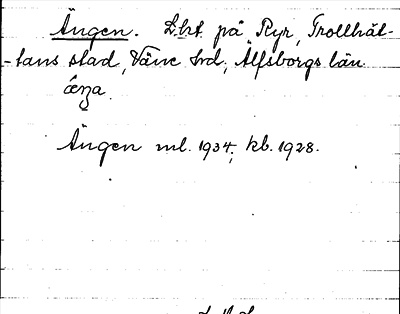 Ängen. Lht på Ryr, Trollhät-
-tans stad, Väne hrd, Älfsborgs län
Ängen ml. 1934; kb. 1928.